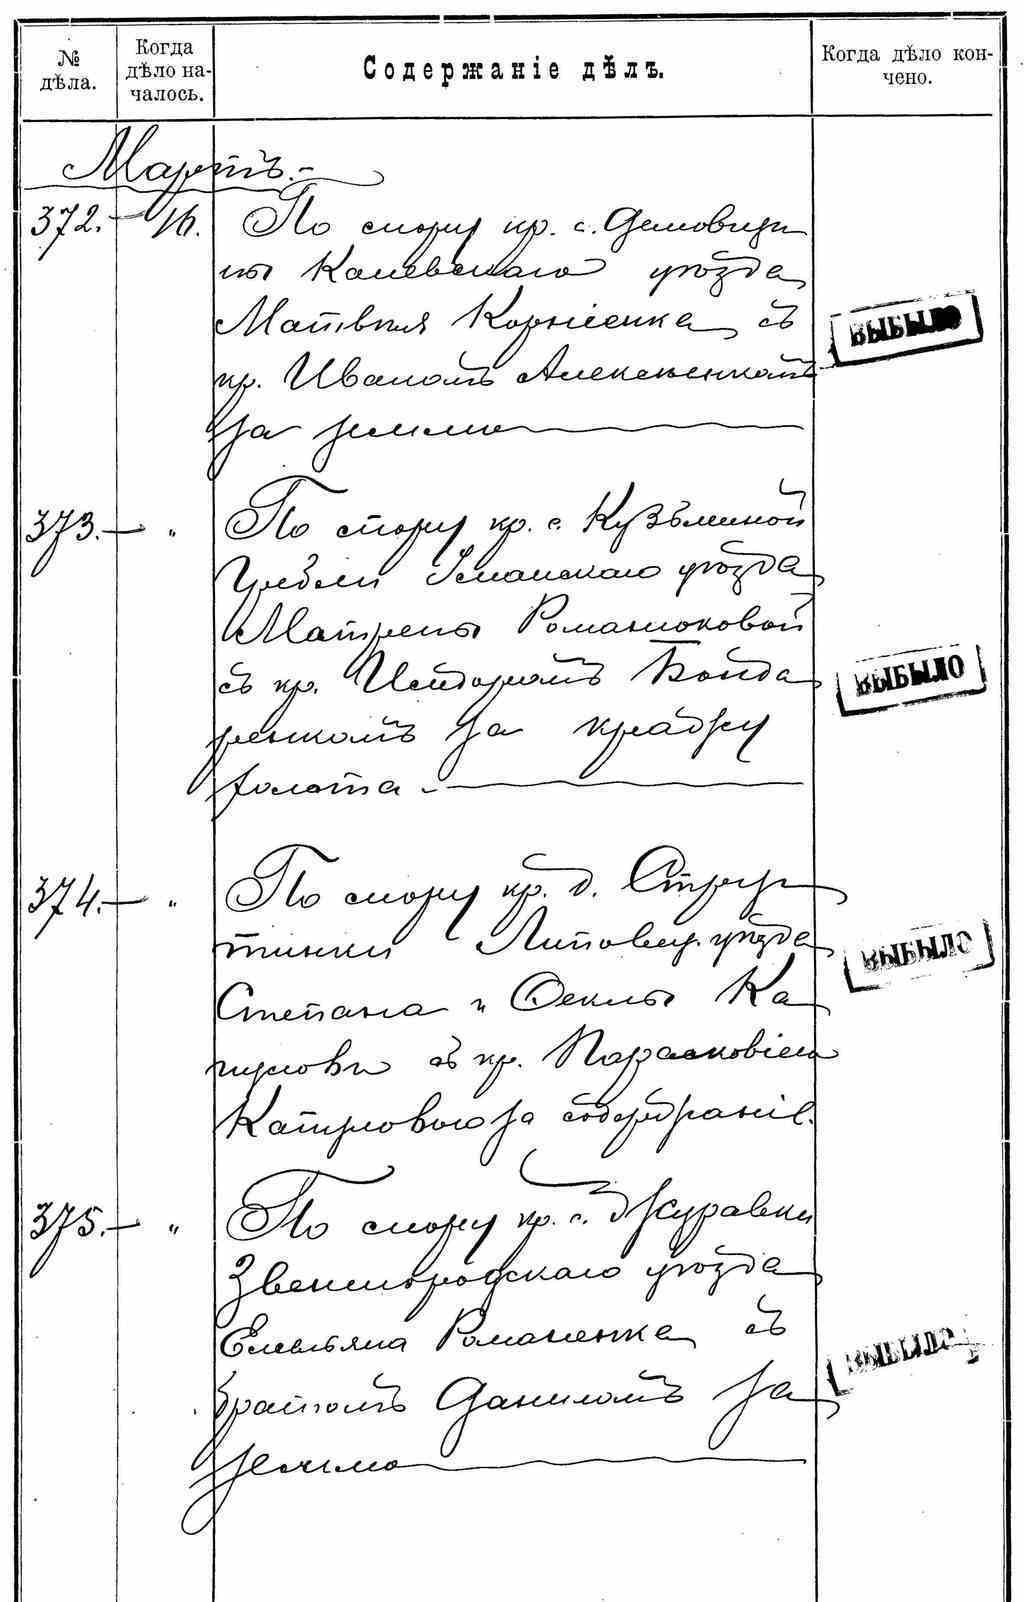 № дѣла.
Когда дѣло началось.
Содержаніе дѣлъ.
Когда дѣло кончено.
Мартъ.
372. 16. По спору кр. с. Демовщи
ны Каневскаго уѣзда
Матвѣя Корніенка съ
кр. Иваномъ Алексѣенкомъ
за землю
ВЫБЫЛО
373. " По спору кр. с. Кузьминой
Гребли Уманскаго уѣзда
Матрены Романюковой
съ кр. Исидоромъ Бонда
ренкомъ за кражу
золота
ВЫБЫЛО
374. " По спору кр. д. Струт
тинки Липовец. уѣзда
Степана и Феклы Ка
съ кр. Парасковіею
за содержаніе.
ВЫБЫЛО
375. " По спору кр. с. Журавки
Звенигородскаго уѣзда
Емельяна Романенка съ
братомъ Даниломъ за
землю
ВЫБЫЛО